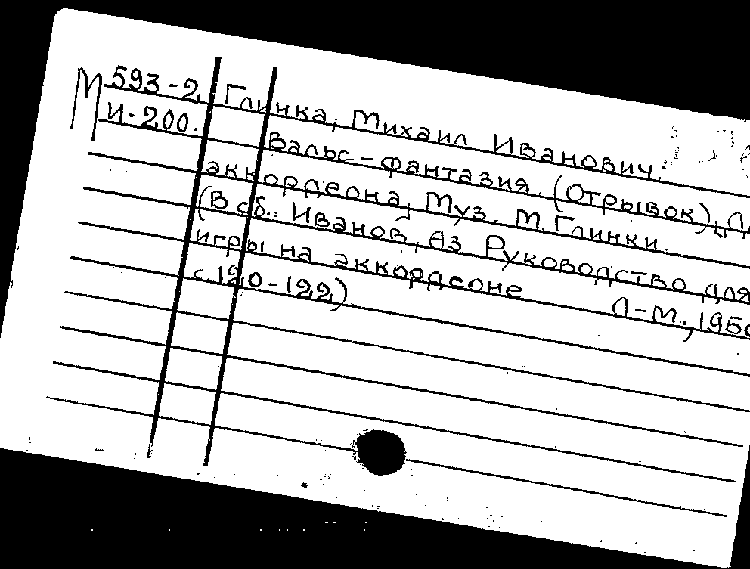 М 593-2 Глинка, Михаил Иванович.
И-200. Вальс-фантазия. (Отрывок). Д
аккордеона, Муз. М. Глинки.
(В сб.: Иванов, Аз Руководство для
игры на аккордеоне Л-М., 195
с. 120-122)